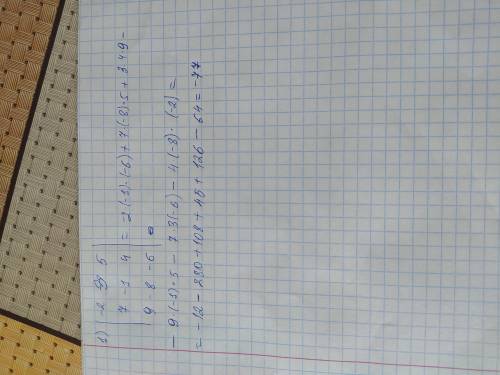 1) | -2 3 5 |
| 7 -1 4 | = -2(-1)·(-6)+7·(-8)·5+3·4·9-
| 9 -8 -6 |
- 9(-1)·5 - 7·3(-6) - 4(-8)·(-2) =
= -12-280+108+45+126-64=-77